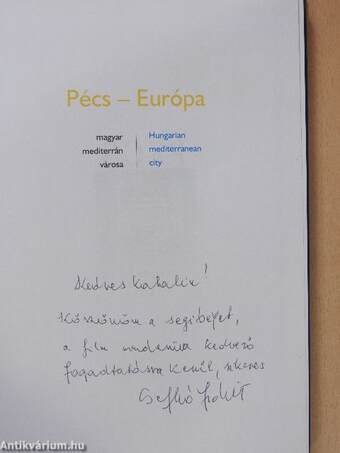 Pécs – Európa
magyar
mediterrán
városa
Hungarian
mediterranean
city
Kedves Katalin!
Köszönöm a segítséget,
a film mindenütt kedvező
fogadtatásra kerül, sikeres
Antikvárium.hu